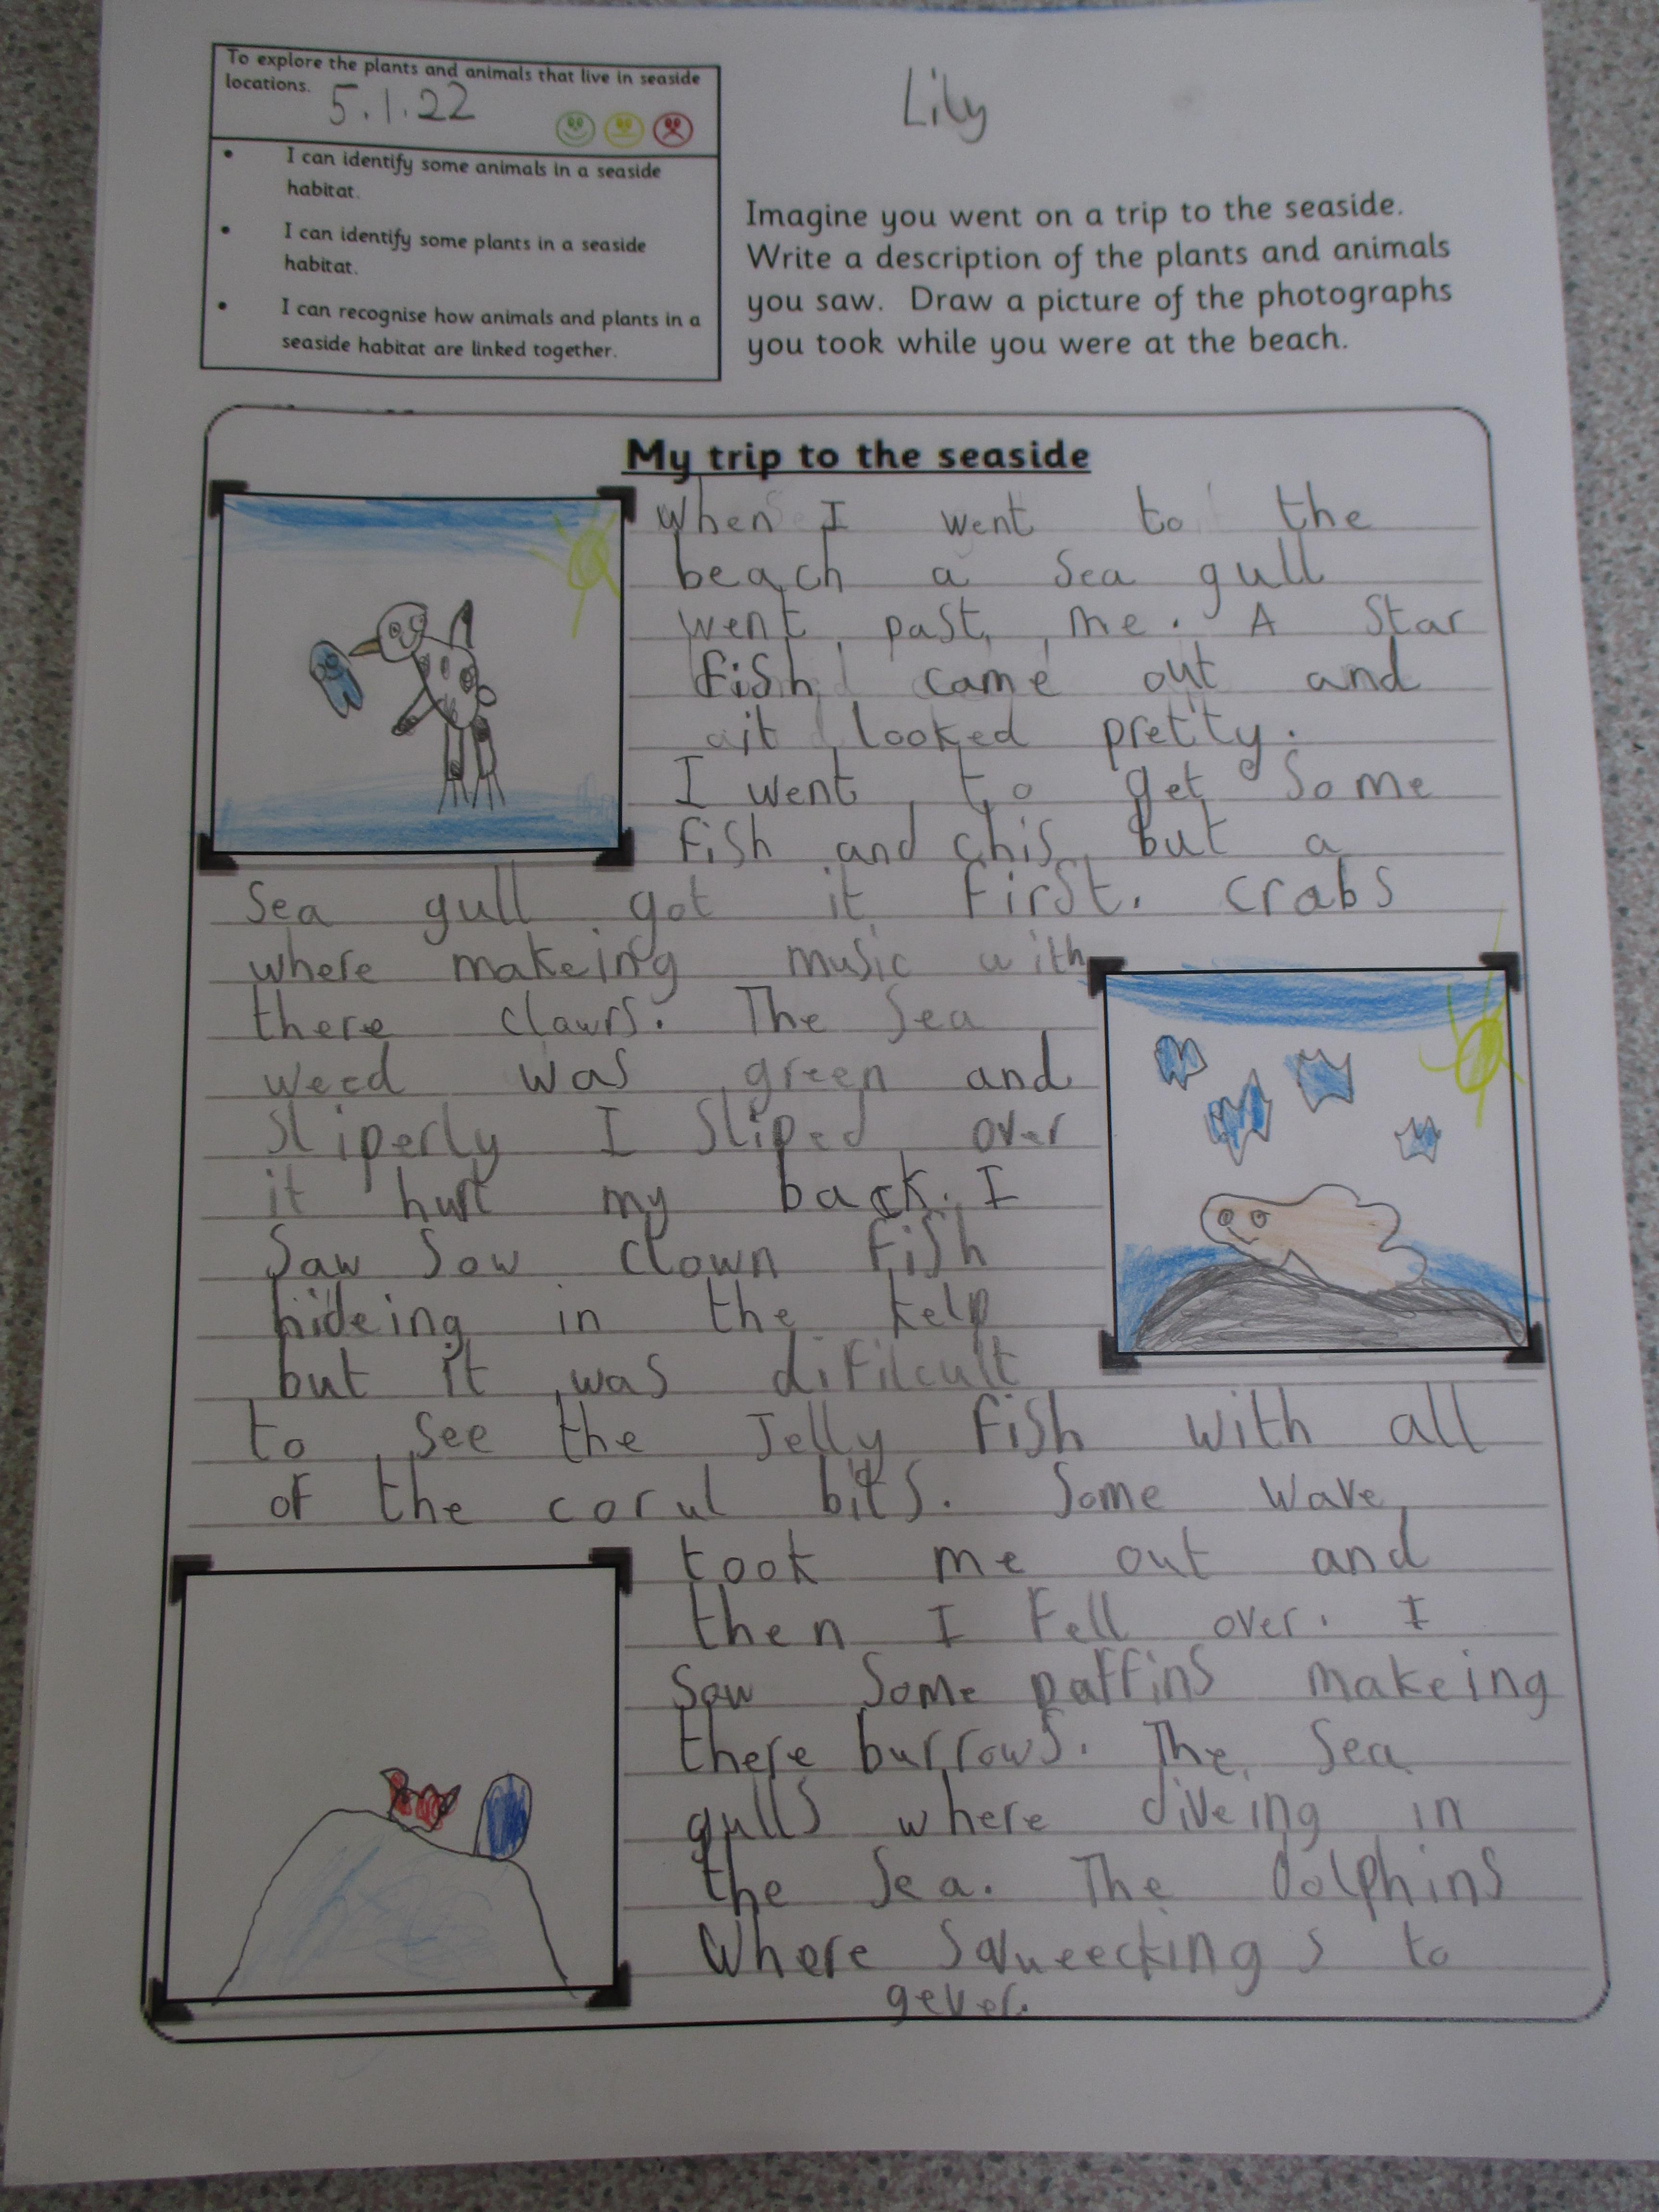 To explore the plants and animals that live in seaside
locations.
5.1.22
• I can identify some animals in a seaside
habitat.
• I can identify some plants in a seaside
habitat.
• I can recognise how animals and plants in a
seaside habitat are linked together.
Lily
Imagine you went on a trip to the seaside.
Write a description of the plants and animals
you saw. Draw a picture of the photographs
you took while you were at the beach.
My trip to the seaside
When I went to the
beach a Sea gull
went past me. A Star
fish came out and
it looked pretty.
I went to get Some
fish and chis but a
Sea gull got it first. crabs
where makeing music with
there clawrs. The Sea
weed was green and
Sliperly I Sliped over
it hurt my back. I
Saw Sow clown fish
hideing in the kelp
but it was difilcult
to see the Jelly fish with all
of the corul bits. Some wave
took me out and
then I fell over. I
Saw Some puffins makeing
there burrows. The Sea
gulls where diveing in
the Sea. The dolphins
Where Squeecking s to
gever.